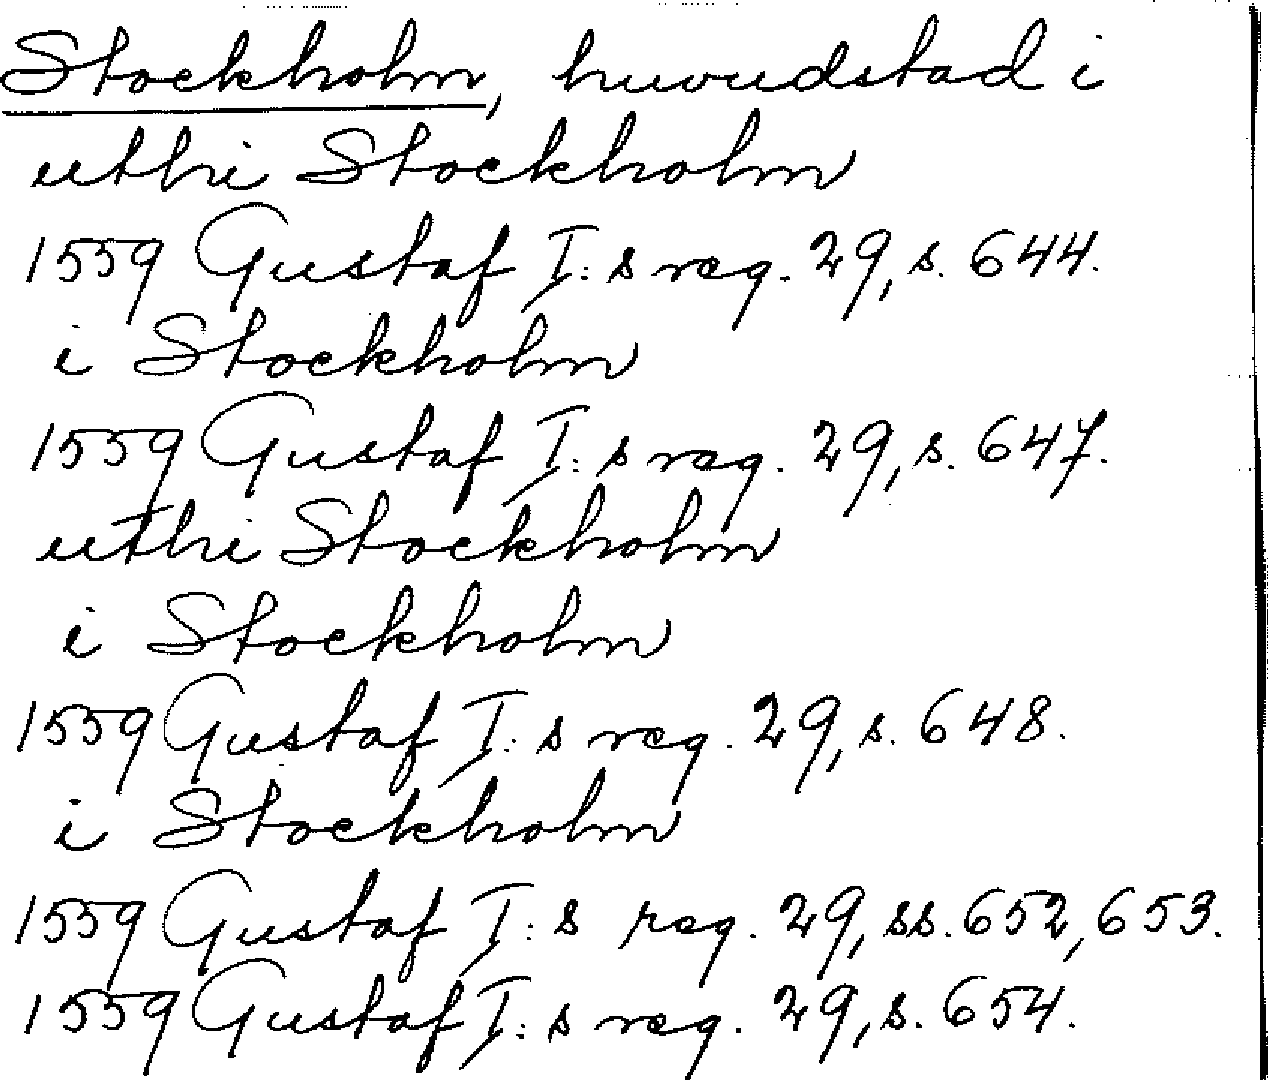 Stockholm, huvudstad i
uthi Stockholm
1559 Gustaf I:s reg. 29, s. 644.
i Stockholm
1559 Gustaf I:s reg. 29, s. 647.
uthi Stockholm
i Stockholm
1559 Gustaf I:s reg. 29, s. 648.
i Stockholm
1559 Gustaf I:s reg. 29, ss. 652, 653.
1559 Gustaf I:s reg. 29, s. 654.